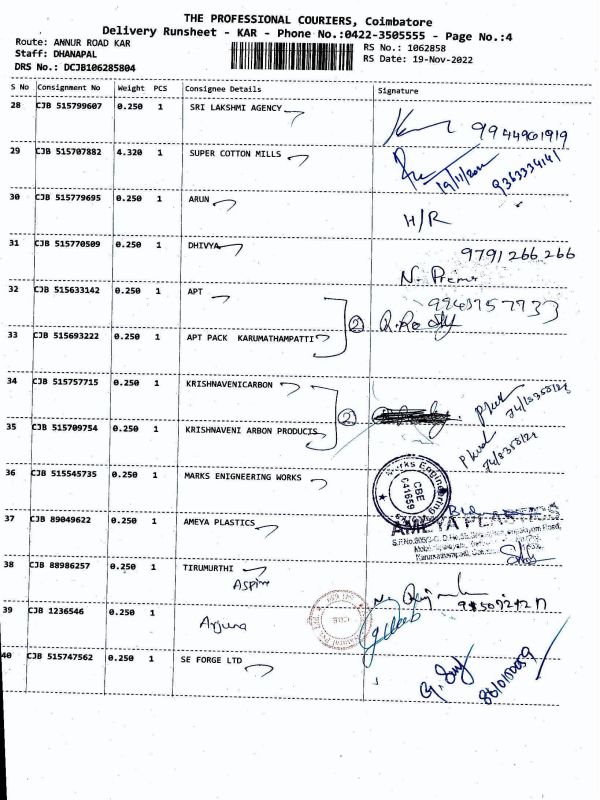 THE PROFESSIONAL COURIERS, Coimbatore
Delivery Runsheet - KAR - Phone No.:0422-3505555 - Page No.:4
Route: ANNUR ROAD KAR
RS No.: 1062858
Staff: DHANAPAL
RS Date: 19-Nov-2022
DRS No.: DCJB106285804
S No Consignment No Weight PCS Consignee Details Signature
28 CJB 515799607 0.250 1 SRI LAKSHMI AGENCY
9944961919
29 CJB 515707882 4.320 1 SUPER COTTON MILLS
9363334141
30 CJB 515779695 0.250 1 ARUN
H/R
31 CJB 515770509 0.250 1 DHIVYA
9791266266
32 CJB 515633142 0.250 1 APT
2
33 CJB 515693222 0.250 1 APT PACK KARUMATHAMPATTI
34 CJB 515757715 0.250 1 KRISHNAVENICARBON
2
35 CJB 515709754 0.250 1 KRISHNAVENI ARBON PRODUCTS
36 CJB 515545735 0.250 1 MARKS ENIGNEERING WORKS
CBE
641659
37 CJB 89049622 0.250 1 AMEYA PLASTICS
AMEYA PLASTICS
38 CJB 88986257 0.250 1 TIRUMURTHI
39 CJB 1236546 0.250 1 Arjuna
40 CJB 515747562 0.250 1 SE FORGE LTD